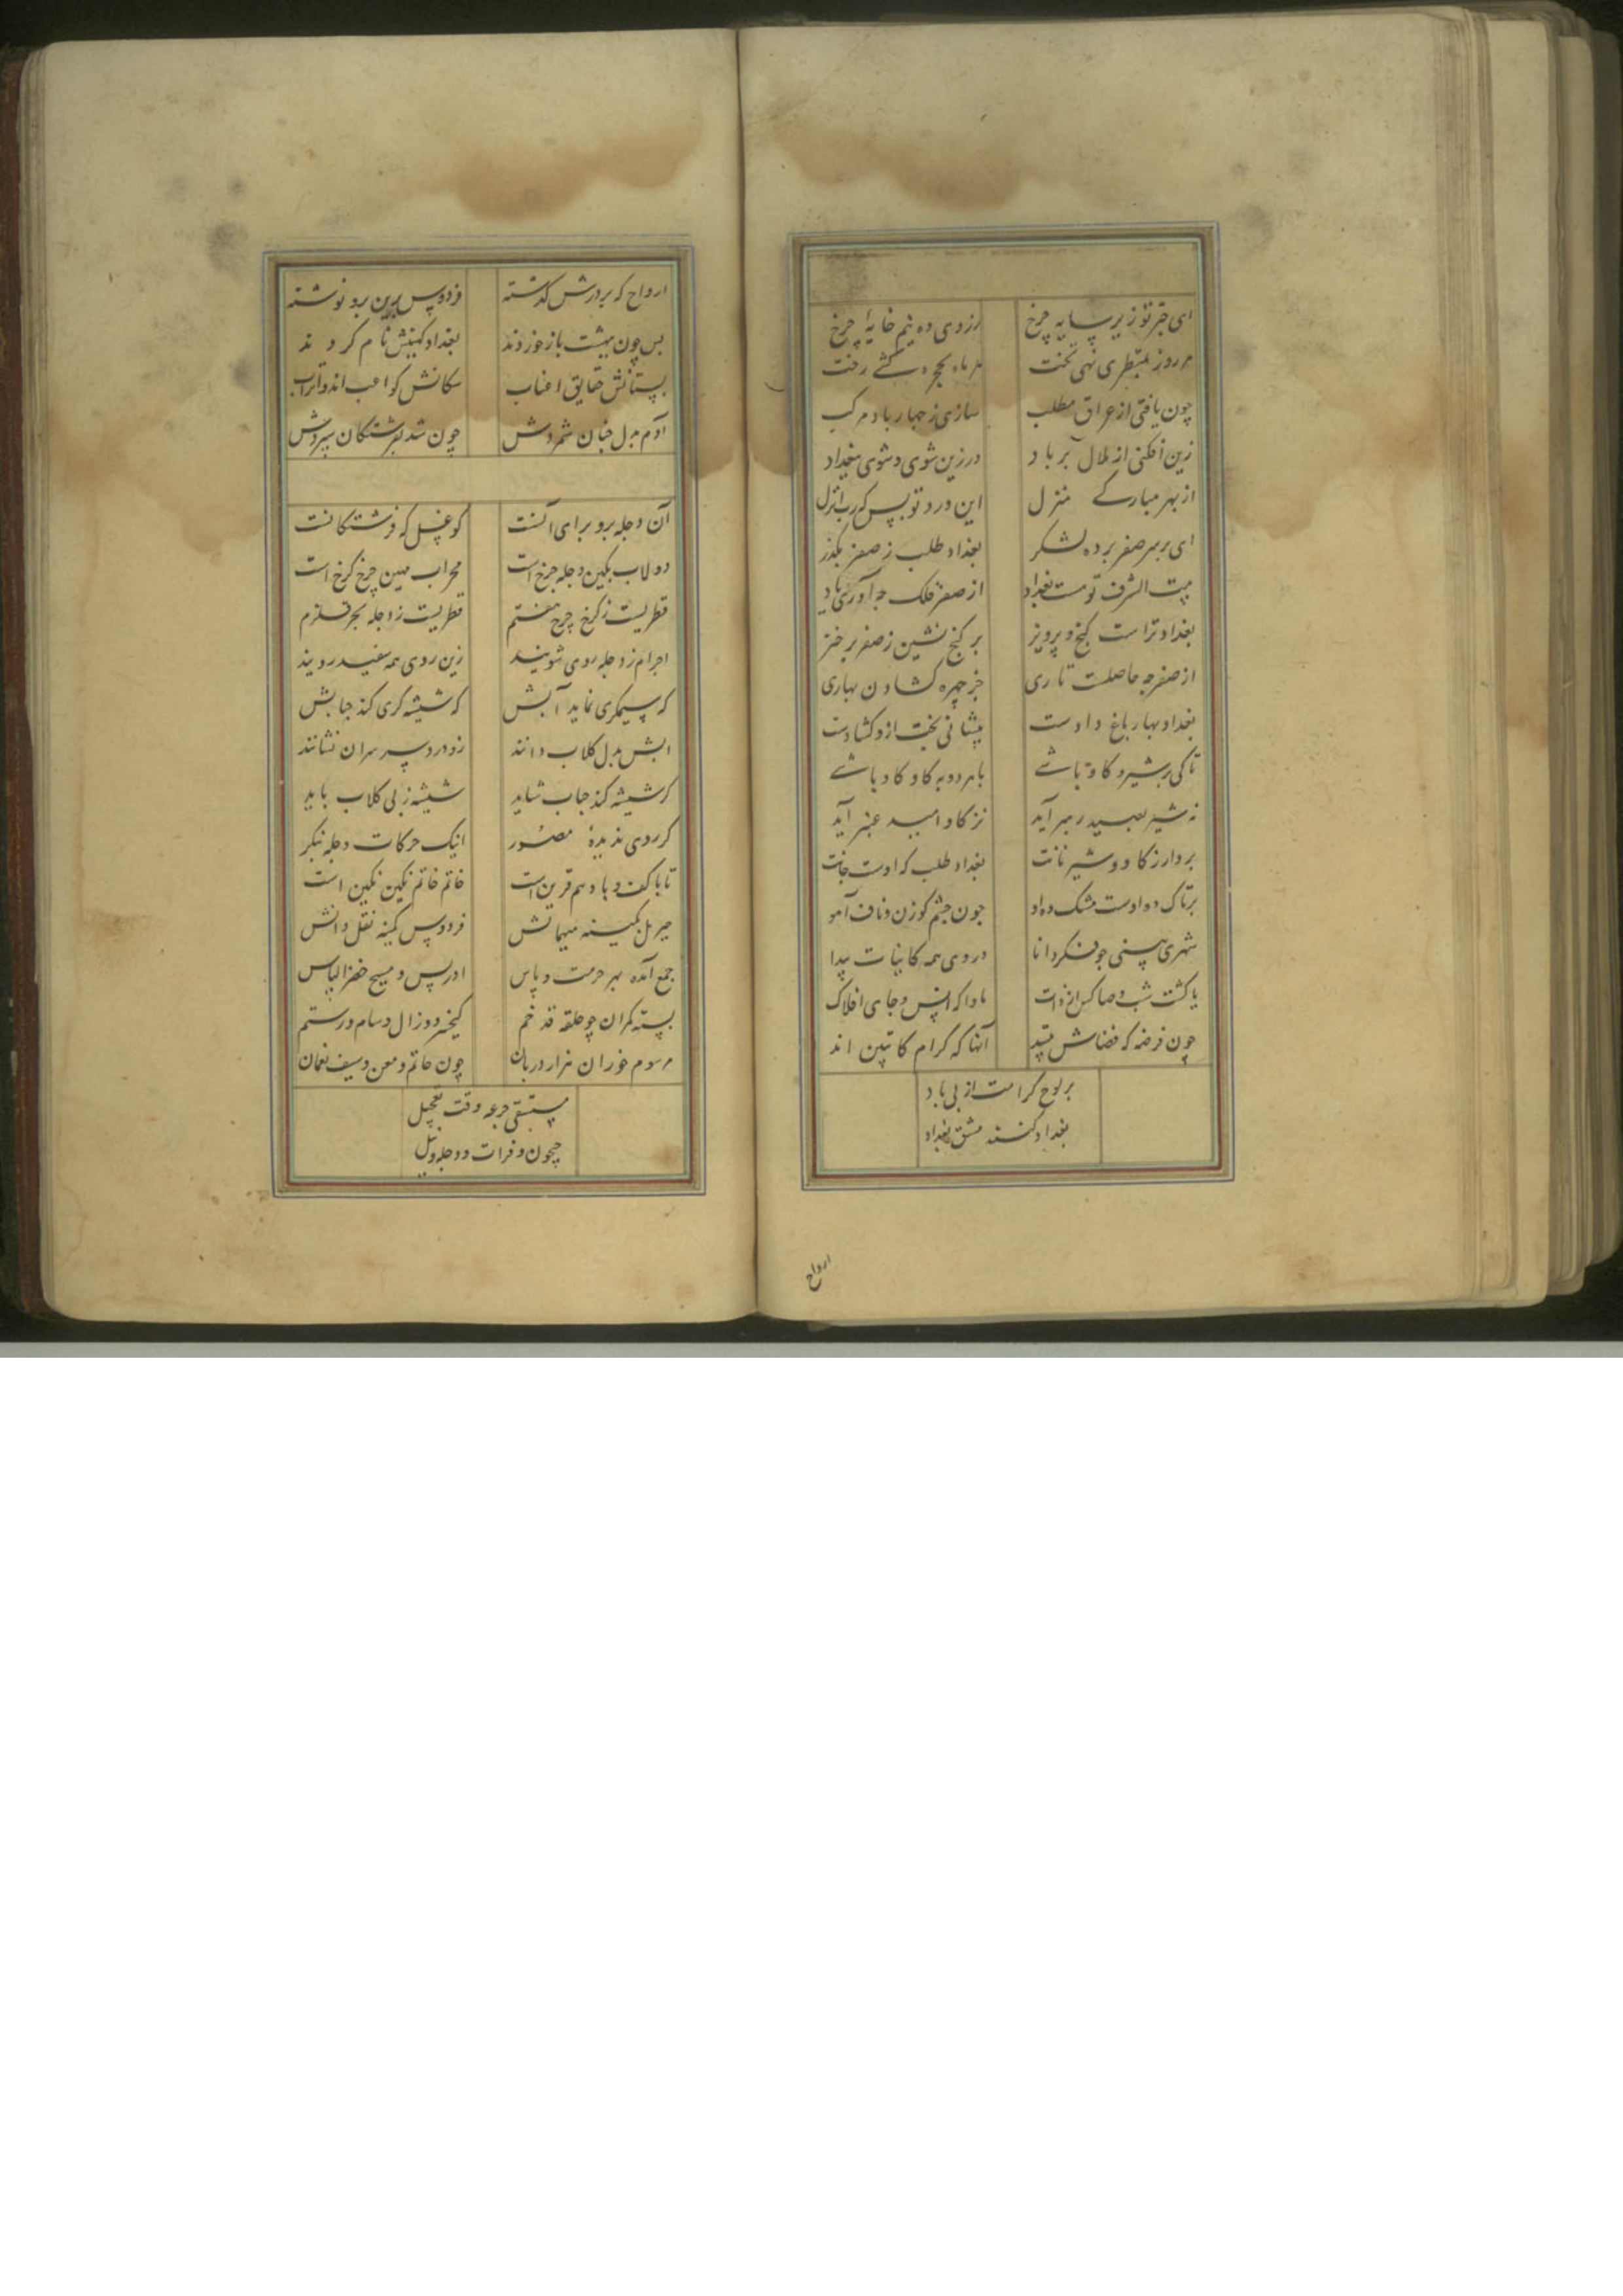 ای چتر تو زیر سایه چرخ
زردی ده نیم خایهٔ چرخ
هر روز بقنطری نهی تخت
هر ماه بحجره کشی رخت
چون یافتی از عراق مطلب
سازی ز چهار باد مرکب
زین افکنی از ملال بر باد
در زین شوی و شوی ببغداد
از بهر مبارکے منزل
این ورد تو بس که رب انزل
ای بر سر صفر برده لشکر
بغداد طلب ز صفر بگذر
بیت الشرف تو هست بغداد
از صفر فلک چه آوری یاد
بغداد تراست گنج پرویز
بر گنج نشین ز صفر برخیز
از صفر چه حاصلت تا ری
جز چهره کشادن بهاری
بغداد بهار باغ دادست
پیشانی بخت ازو کشادست
تا کی بر شیر و کاو باشے
با هر دو به کاو کاو باشے
نه شیر بصید رهبر آید
نز کاو امید عنبر آید
بردار ز کاو و شیر
بغداد طلب که اوست جانت
مشک ده او
چون چشم کوزن و ناف آهو
شهری بینی چو فکر دانا
در وی همه کاینات پیدا
ماوا که انس و جای افلاک
چون فرضه که فضاش
آنها که کرام کاتبین اند
بر لوح کرامت از پی یاد
بغداد کنند مشق بغداد
ارواح
ارواح که بر درش گذشته
فردوس برین برو نوشته
پس چون بهشت باز خوردند
بغداد کهینش نام کردند
بستانش حقایق اعناب
سکانش کواعب اند و اتراب
آدم بدل جنان شمردش
چون شد بفرشتکان سپردش
آن دجله برو برای آنست
کو غسل که فرشتکانست
دولاب بکین دجله چرخ است
محراب مهین چرخ کرخ است
قطریست ز کرخ چرخ هفتم
قطریست ز دجله بحر قلزم
اجرام ز دجله روی شویند
زین روی همه سفید رویند
که سیمکری نماید آبش
که شیشه کری کند حبابش
آبش بدل کلاب دانند
زو درد سر سران نشانند
کر شیشه کند حباب شاید
شیشه ز پی کلاب باید
کر روی ندیدهٔ مصور
اینک حرکات دجله بنکر
تا با کف و باد هم قرین است
خاتم خاتم نکین نکین است
جبریل کمینه میهمانش
فردوس کمینه نقل دانش
جمع آمده بهر حرمت و پاس
ادریس و مسیح خضر الیاس
بسته کمران چو حلقه قد خم
کیخسرو و زال و سام و رستم
مرسوم خوران هزار دربان
چون حاتم و معن و سیف نعمان
مستسقی جرعه وقت تعجیل
جیحون و فرات و دجله و نیل